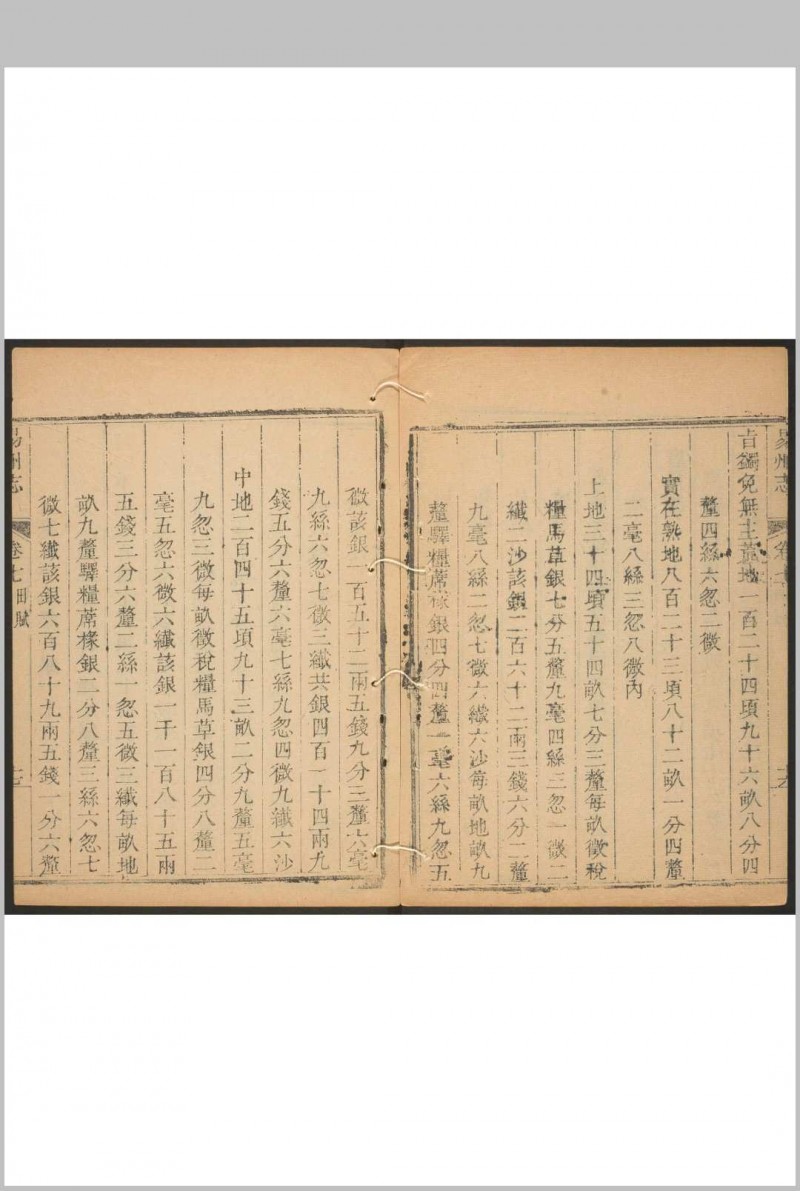 易州志
卷七
旨蠲免無主荒地一百二十四頃九十六畝八分四
釐四絲六忽二微
實在熟地八百二十三頃八十二畝一分四釐
二毫八絲三忽八微內
上地三十四頃五十四畝七分三釐每畝徵稅
糧馬草銀七分五釐九毫四絲三忽一微二
纖二沙該銀二百六十二兩三錢六分二釐
九毫八絲二忽七微六纖六沙每畝地畝九
釐驛糧蓆椽銀四分四釐一毫六絲九忽五
微該銀一百五十二兩五錢九分三釐六毫
九絲六忽七微三纖共銀四百一十四兩九
錢五分六釐六毫七絲九忽四微九纖六沙
中地二百四十五頃九十三畝二分九釐五毫
九忽三微每畝徵稅糧馬草銀四分八釐二
毫五忽六微六纖該銀一千一百八十五兩
五錢三分六釐二絲一忽五微三纖每畝地
畝九釐驛糧蓆椽銀二分八釐三絲六忽七
微七纖該銀六百八十九兩五錢一分六釐
易州志
卷七 田賦
七